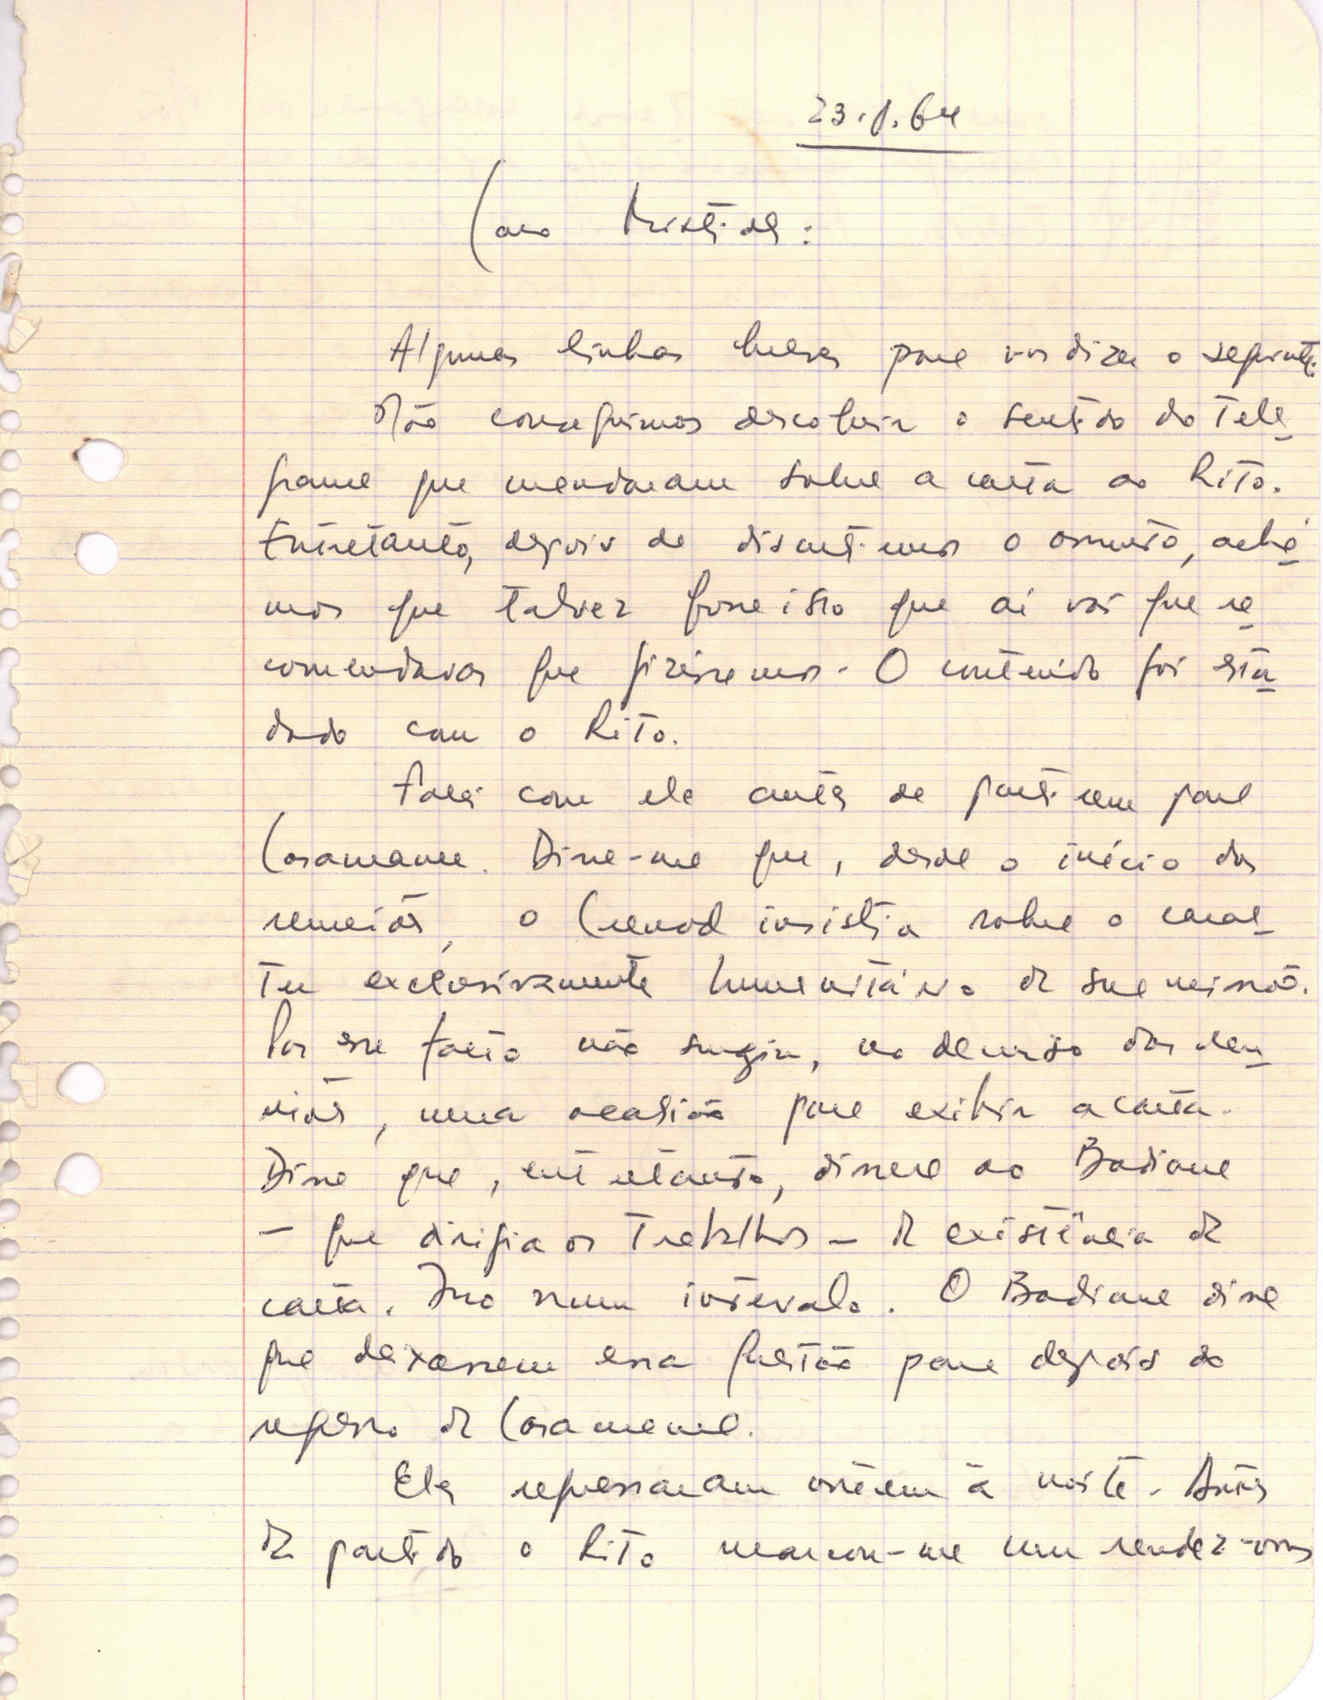 23.1.64
Caro Aristides:
Algumas linhas breves para vos dizer o seguinte:
Não conseguimos descobrir o sentido do tele-
grama que mandaram sobre a carta ao Rito.
Entretanto, depois de discutirmos o assunto, achá-
mos que talvez fosse isto que aí vai que re-
comendavas que fizéssemos. O conteúdo foi estu-
dado com o Rito.
Falei com ele antes de partirem para
Casamance. Disse-me que, desde o início das
reuniões, o Grenod insistia sobre o carac-
ter exclusivamente humanitário da sua missão.
Por esse facto não surgiu, no decurso das reu-
niões, uma ocasião para exibir a carta.
Disse que, entretanto, dissera ao Badiane
– que dirigia os trabalhos – da existência da
carta. Isso num intervalo. O Badiane disse
que deixassem essa questão para depois do
regresso de Casamance.
Eles regressaram ontem à noite. Antes
da partida o Rito marcou-me um rendez-vous